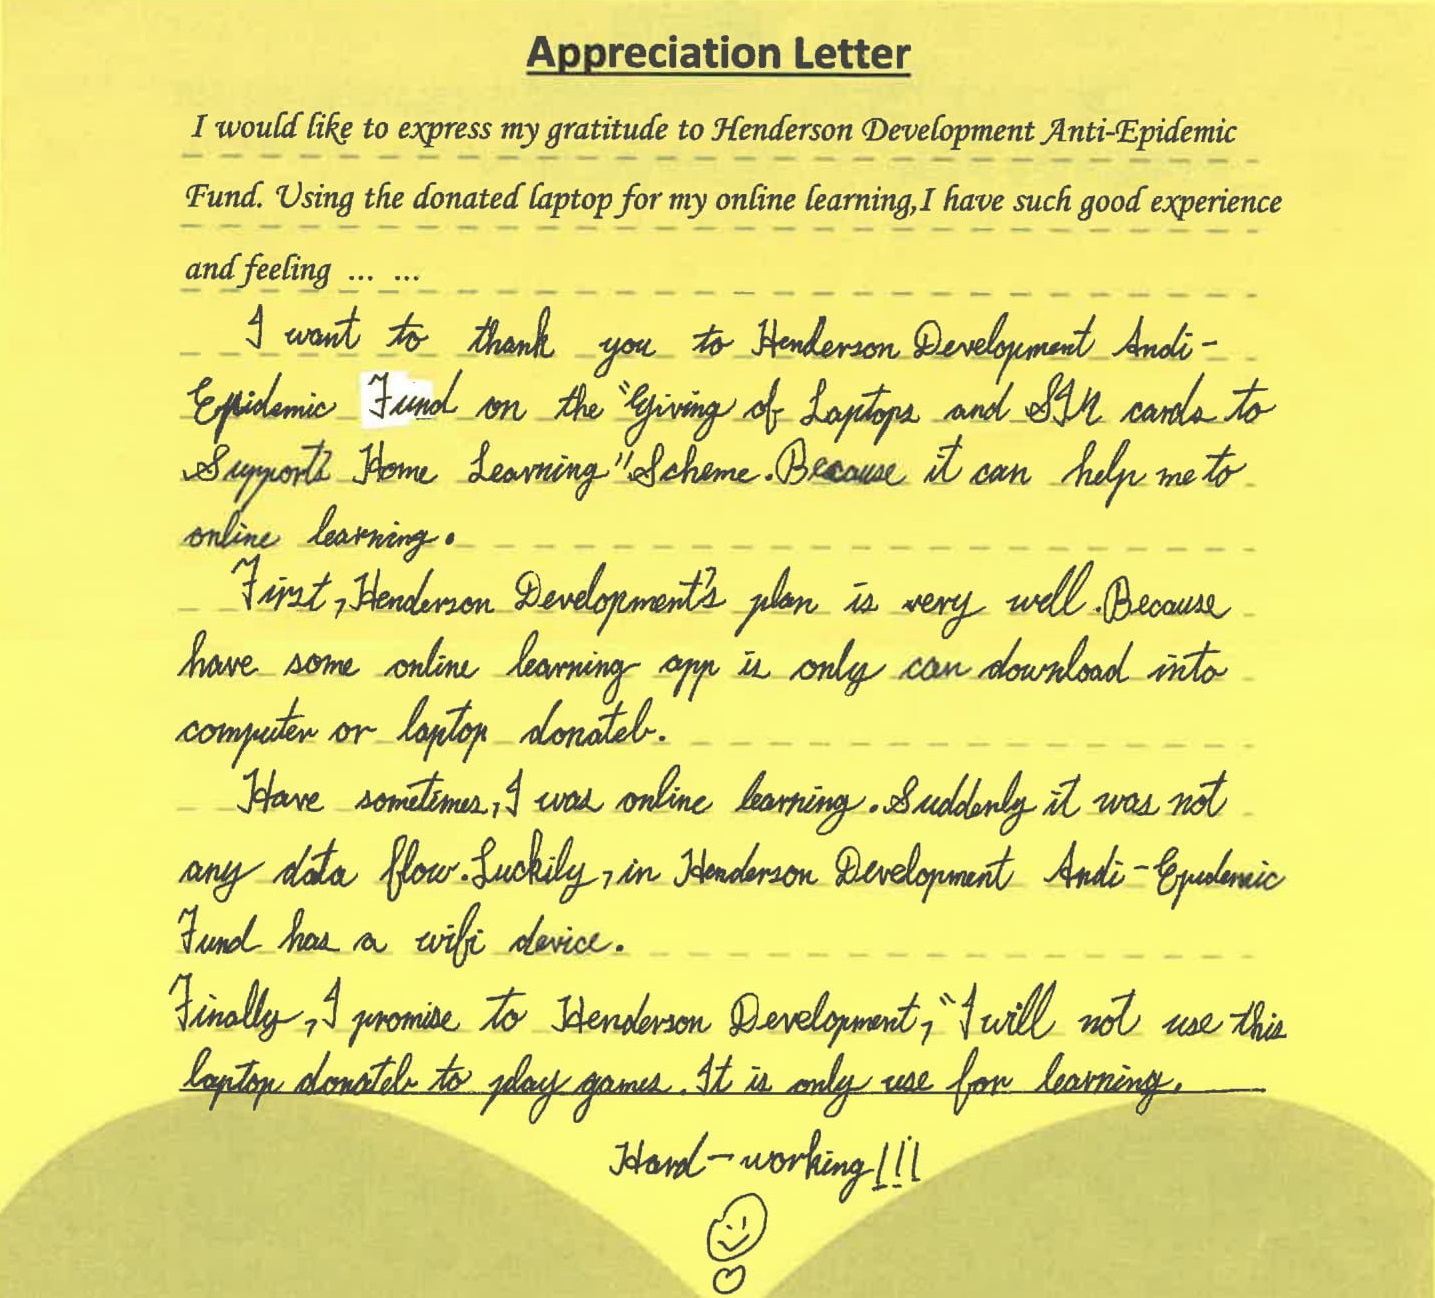 Appreciation Letter
I would like to express my gratitude to Henderson Development Anti-Epidemic
Fund. Using the donated laptop for my online learning,I have such good experience
and feeling ... ...
I want to thank you to Henderson Development Andi-
Epidemic Fund on the "Giving of Laptops and SIM cards to
Supports Home Learning" Scheme. Because it can help me to
online learning.
First, Henderson Development's plan is very well. Because
have some online learning app is only can download into
computer or laptop donateb.
Have sometimes, I was online learning. Suddenly it was not
any data flow. Luckily, in Henderson Development Andi-Epidemic
Fund has a wifi device.
Finally, I promise to Henderson Development, "I will not use this
laptop donateb to play games. It is only use for learning.
Hard-working!!!